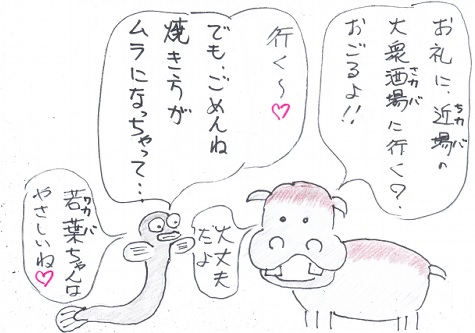 お礼に、近場の
ちカバ
大衆酒場に行く?
さカバ
おごるよ!!
行く〜♡
でも、ごめんね
焼き方が
ムラになっちゃって…
大丈夫
だよ
若葉ちゃんは
ワカバ
やさしいね♡